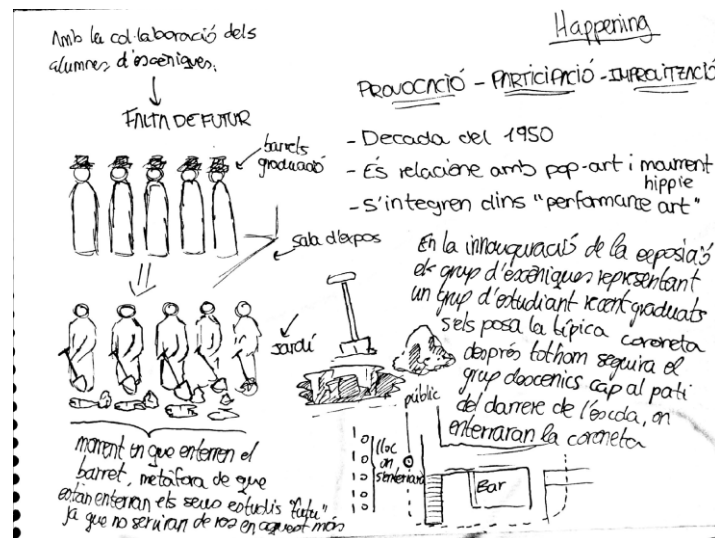 Amb la col·laboració dels
alumnes d'escèniques.
FALTA DE FUTUR
barrets
graduació
sala d'expos
jardí
moment en que enterren el
barret, metàfora de que
están enterran els seus estudis "futu"
ja que no serviran de res en aquest món
Happening
PROVOCACIÓ - PARTICIPACIÓ - IMPROLITZACIÓ
- Decada del 1950
- És relacione amb pop-art i moviment
hippie
- S'integren dins "performance art"
En la innouguració de la exposició
el grup d'escèniques representant
un grup d'estudiant recent graduats
sels posa la típica coroneta
després tothom seguira el
grup d'escenics cap al pati
del darrere de l'escola, on
enterraran la coroneta
públic
lloc
on
s'enterrarà
Bar